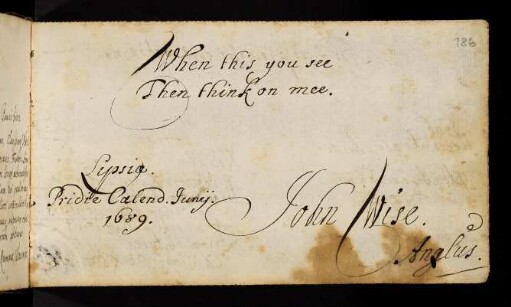 186
When this you see
Then think on mee.
Lipsiæ.
Pridie Calend. Junij.
1689.
John Wise.
Anglus.